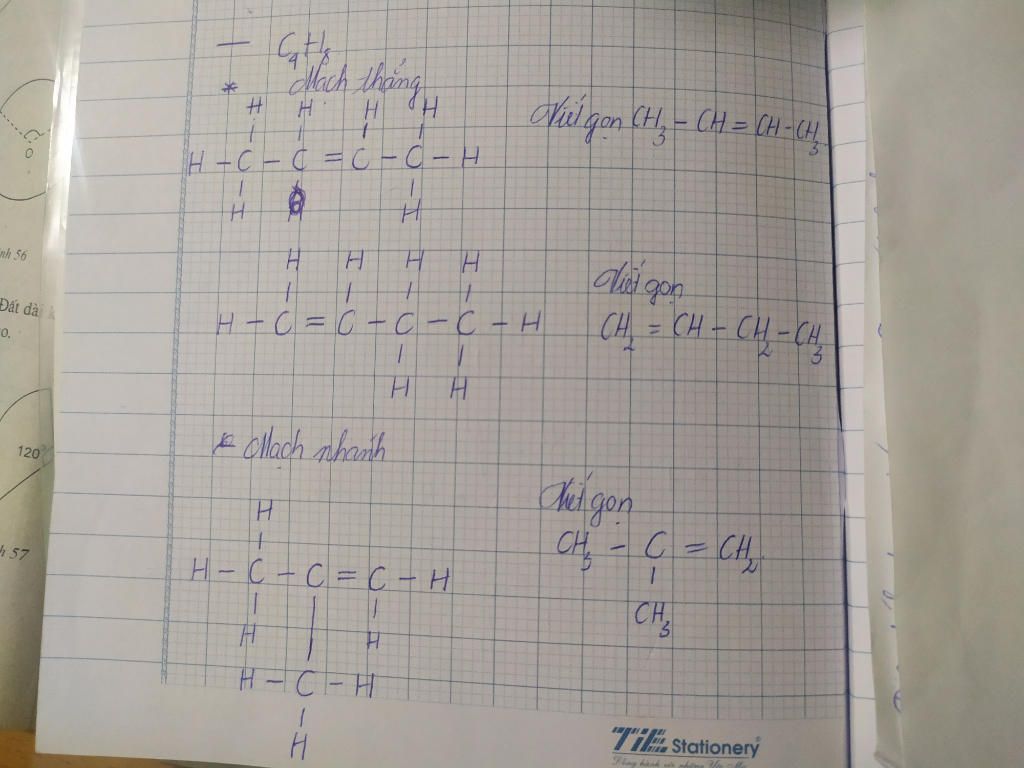 — C₄H₈
* Mạch thẳng
H H H H
H – C – C = C – C – H
H H
Viết gọn CH₃ – CH = CH – CH₃
H H H H
H – C = C – C – C – H
H H
Viết gọn
CH₂ = CH – CH₂ – CH₃
* Mạch nhánh
H
H – C – C = C – H
H H
H – C – H
H
Viết gọn
CH₃ – C = CH₂
CH₃
0
nh 56
Đất đà
o.
120
h 57
TiE Stationery